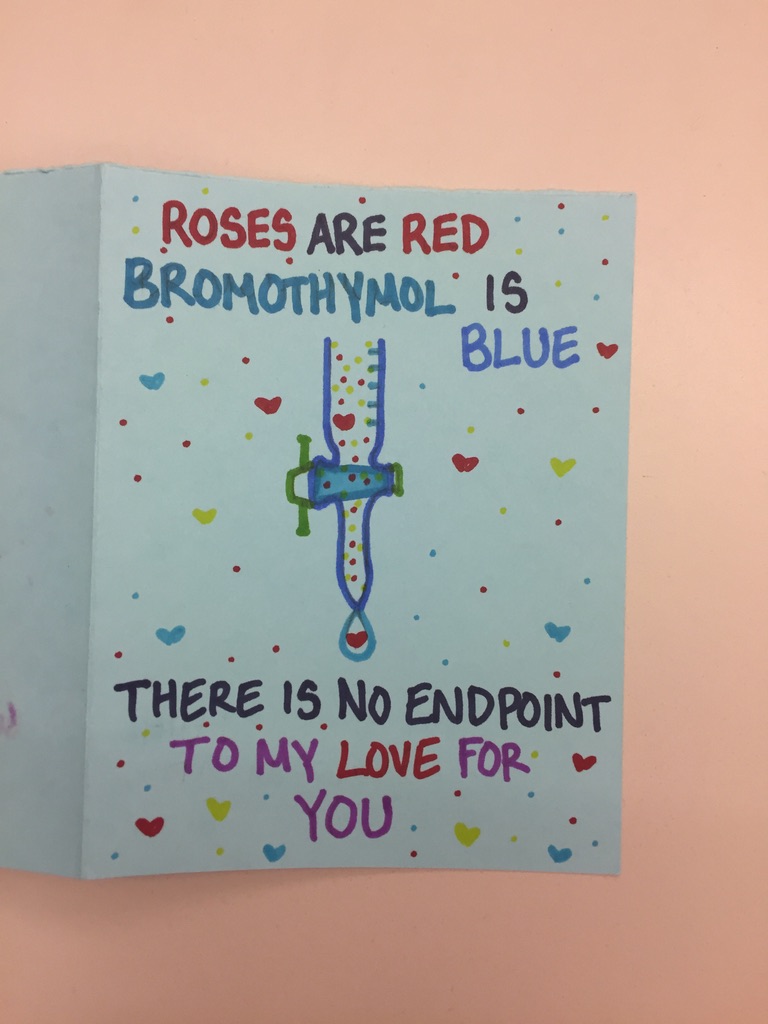 ROSES ARE RED
BROMOTHYMOL IS
BLUE
THERE IS NO ENDPOINT
TO MY LOVE FOR
YOU